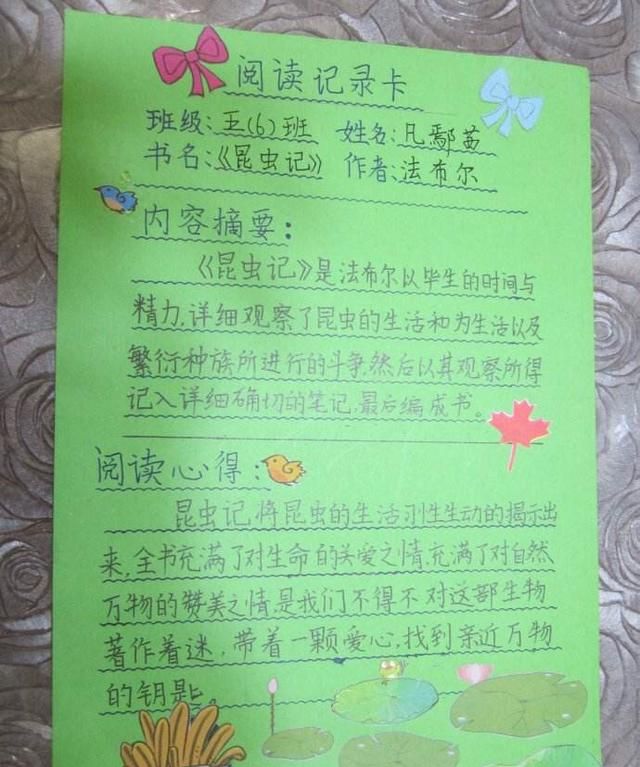 阅读记录卡
班级:五(6)班 姓名:凡鄢茜
书名:《昆虫记》 作者:法布尔
内容摘要:
《昆虫记》是法布尔以毕生的时间与
精力,详细观察了昆虫的生活和为生活以及
繁衍种族所进行的斗争,然后以其观察所得
记入详细确切的笔记,最后编成书。
阅读心得:
昆虫记,将昆虫的生活习生生动的揭示出
来,全书充满了对生命的关爱之情,充满了对自然
万物的赞美之情,是我们不得不对这部生物
著作着迷,带着一颗爱心,找到亲近万物
的钥匙。